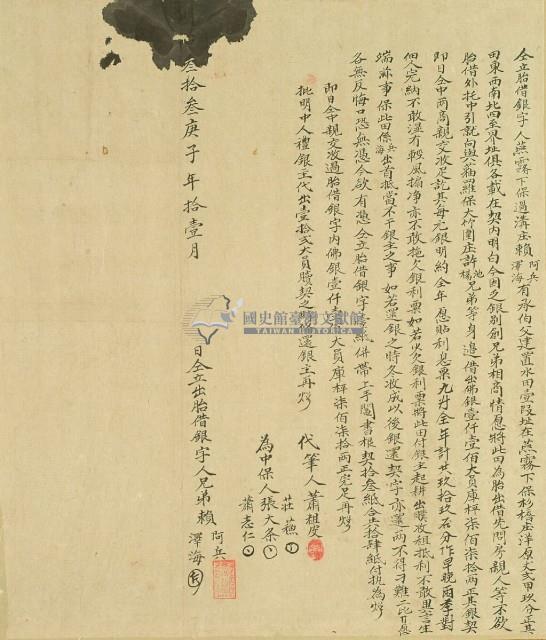 仝立胎借銀字人燕霧下保過溝庄賴阿兵澤海有承伯父建置水田壹段址在燕霧下保杉槢庄洋原丈弍甲玖分正其
田東西南北四至界址俱各載在契內明白今因乏銀別創兄弟相商情愿將此田為胎出借先問房親人等不欲
胎借外托中引就向與六庄羅保大竹圍庄許池楊兄弟等身邊借出佛銀壹仟壹佰大員庫枰柒佰柒拾兩正其銀契
即日仝中兩商親交收足訖其每元銀明約全年愿貼利息粟九升全年計共玖拾玖石分作早晚兩季對
佃人完納不敢湿冇輕風搧净亦不敢拖欠銀利粟如若少欠銀利粟將此田付銀主起耕出贌收租抵利不敢異言生
端滋事保此田兵海出首抵當不干銀主之事如若還銀之時冬收成以後銀還契字亦還兩不得刁難二比甘愿
各無反悔口恐無憑今欲有憑仝立胎借銀字壹紙併帶上手鬮書根契拾叁紙合共拾肆紙付執為炤
即日仝中親交收過胎借銀字內佛銀壹仟壹佰大員庫枰柒佰柒拾兩正完足再炤
批明中人禮銀主代出壹拾弍大員贖契之時 還銀主再炤
代筆人蕭祖皮
莊
為中保人張大条
蕭志仁
叁拾叁庚子年拾壹月 日仝立出胎借銀字人兄弟賴阿兵澤海
國史館臺灣文獻館
TAIWAN HISTORICA